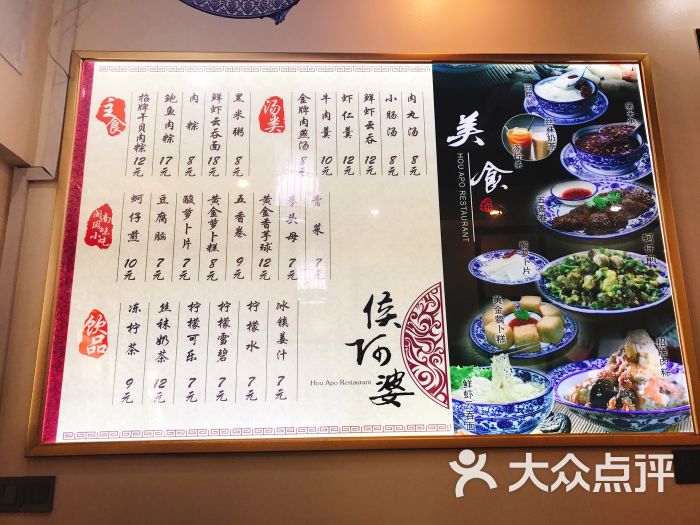 主食
招牌干贝肉粽 12元
鲍鱼肉粽 17元
肉粽 8元
鲜虾云吞面 18元
黑米粥 8元
汤类
金牌肉燕汤 8元
牛肉羹 10元
虾仁羹 12元
鲜虾云吞 12元
小肠汤 8元
肉丸汤 8元
闽南风味小吃
蚵仔煎 10元
豆腐脑 7元
酸萝卜片 7元
黄金萝卜糕 8元
五香卷 9元
黄金香芋球 12元
拳头母 7元
青菜 7元
饮品
冻柠茶 9元
丝袜奶茶 12元
柠檬可乐 7元
柠檬雪碧 7元
柠檬水 7元
冰镇姜汁 7元
侯阿婆
Hou Apo Restaurant
美食
HOU APO RESTAURANT
丝袜奶茶
冻柠茶
蚵仔煎
黄金萝卜糕
招牌肉粽
鲜虾云吞面
大众点评